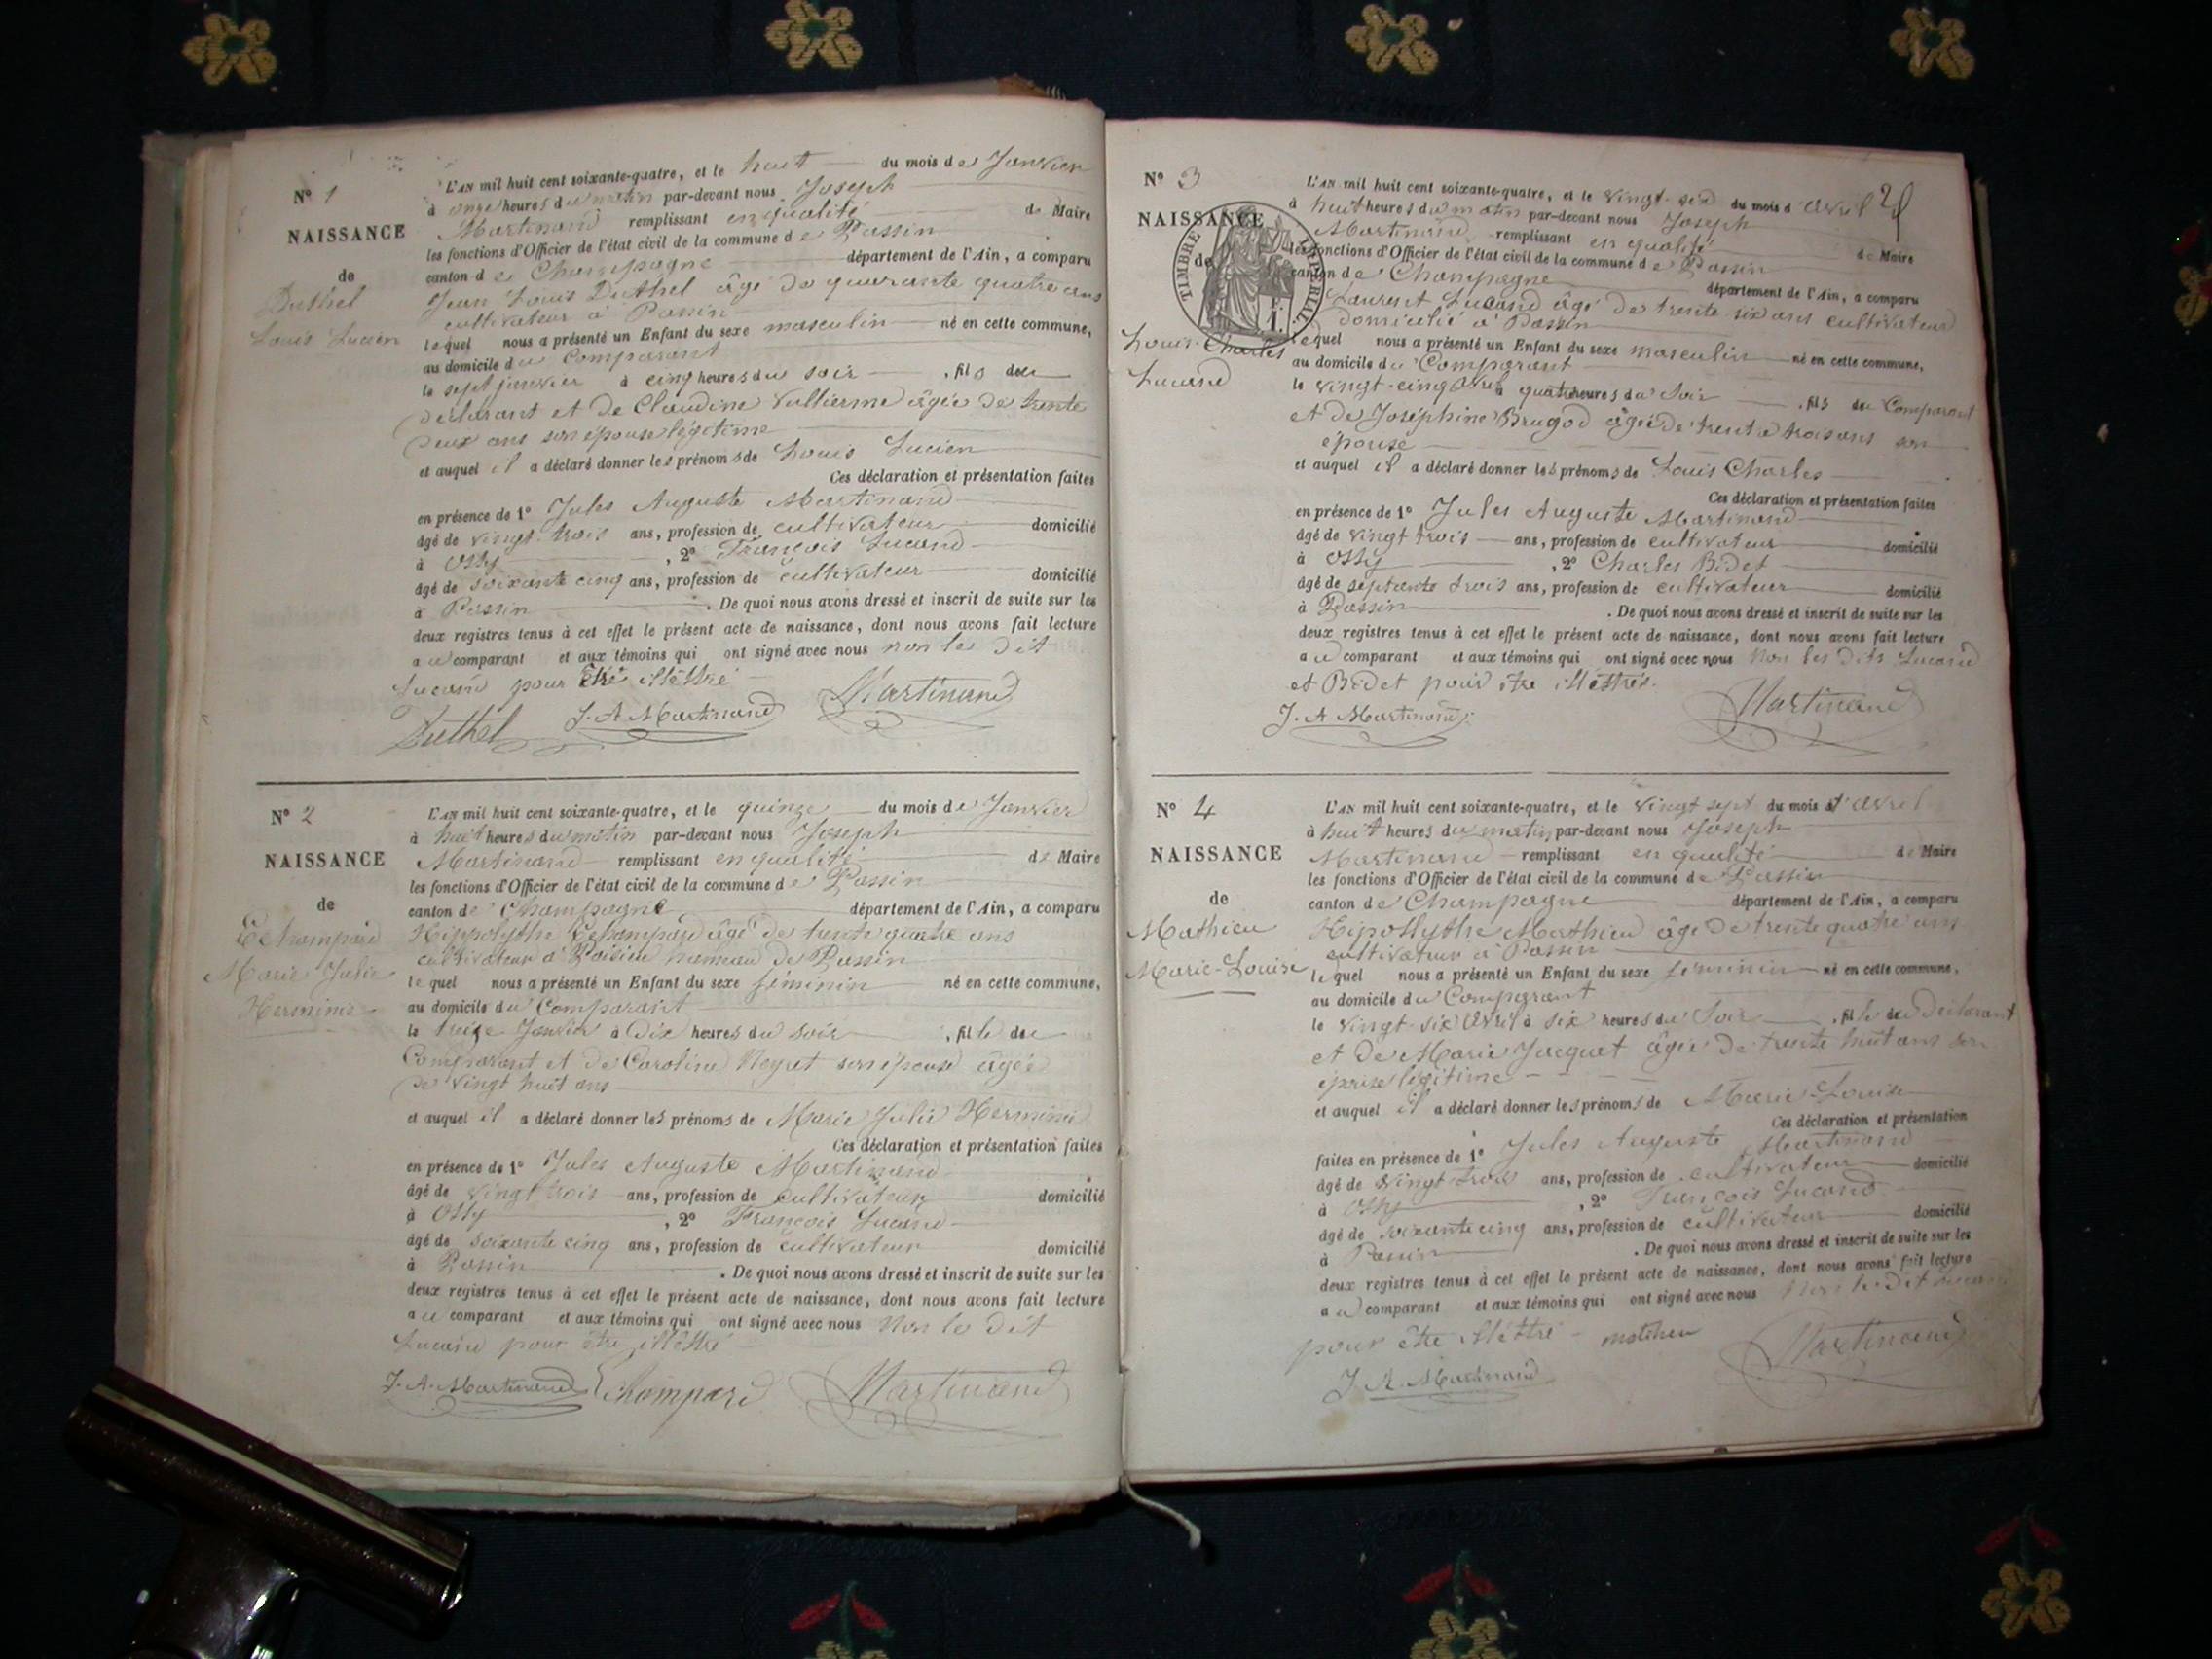 N° 1
NAISSANCE
de
Duthel
Louis Lucien
L'AN mil huit cent soixante-quatre, et le huit du mois de Janvier
à onze heures du matin par-devant nous Joseph
Martinand remplissant en qualité de Maire
les fonctions d'Officier de l'état civil de la commune de Passin
canton de Champagne département de l'Ain, a comparu
Jean Louis Duthel âgé de quarante quatre ans
cultivateur à Passin
lequel nous a présenté un Enfant du sexe masculin né en cette commune,
au domicile du Comparant
le sept janvier à cinq heures du soir , fils du
déclarant et de Claudine Vullierme âgée de trente
deux ans son épouse légitime
et auquel il a déclaré donner les prénoms de Louis Lucien
Ces déclaration et présentation faites
en présence de 1° Jules Auguste Martinand
âgé de vingt trois ans, profession de cultivateur domicilié
à Ossy , 2° François Lucand
âgé de soixante cinq ans, profession de cultivateur domicilié
à Passin . De quoi nous avons dressé et inscrit de suite sur les
deux registres tenus à cet effet le présent acte de naissance, dont nous avons fait lecture
au comparant et aux témoins qui ont signé avec nous non le dit
Lucand pour être illéttré
Duthel J. A Martinand Martinand
N° 2
NAISSANCE
de
Marie Julie
Herminie
L'AN mil huit cent soixante-quatre, et le quinze du mois de Janvier
à huit heures du matin par-devant nous Joseph
Martinand remplissant en qualité de Maire
les fonctions d'Officier de l'état civil de la commune de Passin
canton de Champagne département de l'Ain, a comparu
Hippolythe âgé de trente quatre ans
cultivateur à Poisieu hameau de Passin
lequel nous a présenté un Enfant du sexe féminin né en cette commune,
au domicile du Comparant
le treize Janvier à dix heures du soir , fille du
Comparant et de Caroline Neyret son épouse âgée
de vingt huit ans
et auquel il a déclaré donner les prénoms de Marie Julie Herminie
Ces déclaration et présentation faites
en présence de 1° Jules Auguste Martinand
âgé de vingt trois ans, profession de cultivateur domicilié
à Ossy , 2° François Lucand
âgé de soixante cinq ans, profession de cultivateur domicilié
à Passin . De quoi nous avons dressé et inscrit de suite sur les
deux registres tenus à cet effet le présent acte de naissance, dont nous avons fait lecture
au comparant et aux témoins qui ont signé avec nous Non le dit
Lucand pour être illéttré
J. A. Martinand Martinand
N° 3
NAISSANCE
de
TIMBRE IMPERIAL
Louis Charles
Lucand
L'AN mil huit cent soixante-quatre, et le vingt six du mois d'avril
à huit heures du matin par-devant nous Joseph
Martinand remplissant en qualité de Maire
les fonctions d'Officier de l'état civil de la commune de Passin
canton de Champagne département de l'Ain, a comparu
Laurent Lucand âgé de trente six ans cultivateur
domicilié à Passin
lequel nous a présenté un Enfant du sexe masculin né en cette commune,
au domicile du Comparant
le vingt-cinq Avril à quatre heures du Soir , fils du Comparant
et de Joséphine Brugod âgée de trente trois ans son
épouse
et auquel il a déclaré donner les prénoms de Louis Charles
Ces déclaration et présentation faites
en présence de 1° Jules Auguste Martinand
âgé de vingt trois ans, profession de cultivateur domicilié
à Ossy , 2° Charles Bidet
âgé de septante trois ans, profession de cultivateur domicilié
à Passin . De quoi nous avons dressé et inscrit de suite sur les
deux registres tenus à cet effet le présent acte de naissance, dont nous avons fait lecture
au comparant et aux témoins qui ont signé avec nous Non les dits Lucand
et Bidet pour être illéttrés.
J. A Martinand Martinand
N° 4
NAISSANCE
de
Mathieu
Marie-Louise
L'AN mil huit cent soixante-quatre, et le vingt sept du mois d'avril
à huit heures du matin par-devant nous Joseph
Martinand remplissant en qualité de Maire
les fonctions d'Officier de l'état civil de la commune de Passin
canton de Champagne département de l'Ain, a comparu
Hipollythe Mathieu âgé de trente quatre ans
cultivateur à Passin
lequel nous a présenté un Enfant du sexe féminin né en cette commune,
au domicile du Comparant
le vingt-six Avril à six heures du Soir , fille du déclarant
et de Marie Jacquet âgée de trente huit ans son
épouse légitime
et auquel il a déclaré donner les prénoms de Marie-Louise
Ces déclaration et présentation
faites en présence de 1° Jules Auguste Martinand
âgé de vingt trois ans, profession de cultivateur domicilié
à Ossy , 2° François Lucand
âgé de soixante cinq ans, profession de cultivateur domicilié
à Passin . De quoi nous avons dressé et inscrit de suite sur les
deux registres tenus à cet effet le présent acte de naissance, dont nous avons fait lecture
au comparant et aux témoins qui ont signé avec nous Non le dit Lucand
pour être illéttré mathieu Martinand
J. A. Martinand